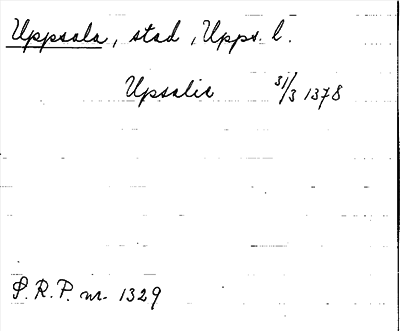 Uppsala, stad, Upps. l.
Upsalie 31/3 1378
S.R.P. nr. 1329